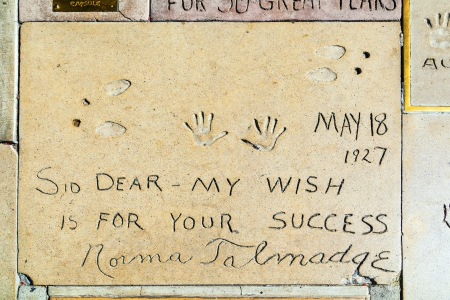 CAPSULE
FOR 50 GREAT YEARS
AU
MAY 18
1927
SID DEAR - MY WISH
IS FOR YOUR SUCCESS
Norma Talmadge